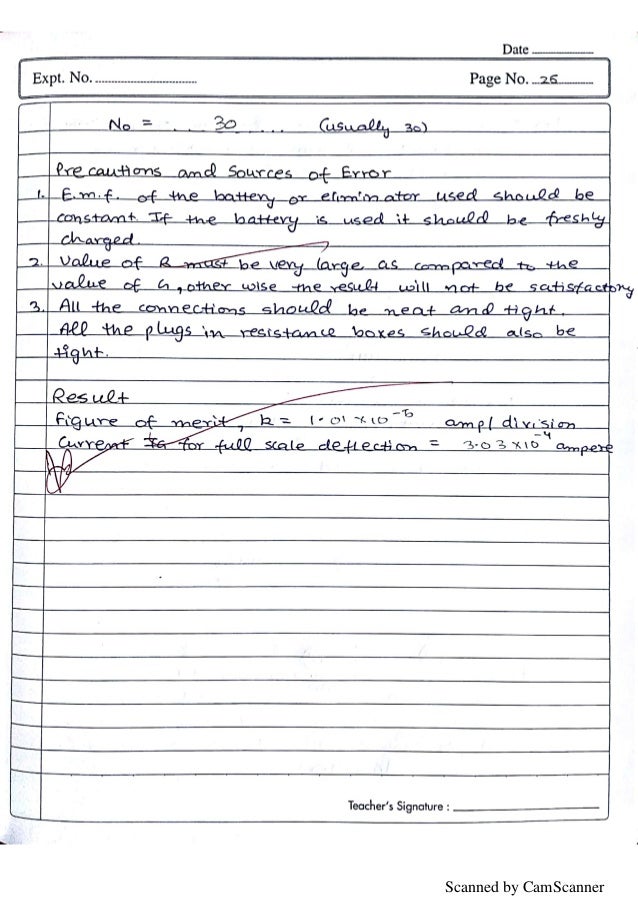 Date
Expt. No.
Page No. 26
No = 30 (usually 30)
Precautions and Sources of Error
1. E.m.f. of the battery or eliminator used should be
constant. If the battery is used it should be freshly
charged.
2. Value of R must be very large as compared to the
value of G, other wise the result will not be satisfactory
3. All the connections should be neat and tight.
All the plugs in resistance boxes should also be
tight.
Result
figure of merit, k = 1.01 × 10⁻⁵ amp/ division
Current Ig for full scale deflection = 3.03 × 10⁻⁴ ampere
Teacher's Signature :
Scanned by CamScanner